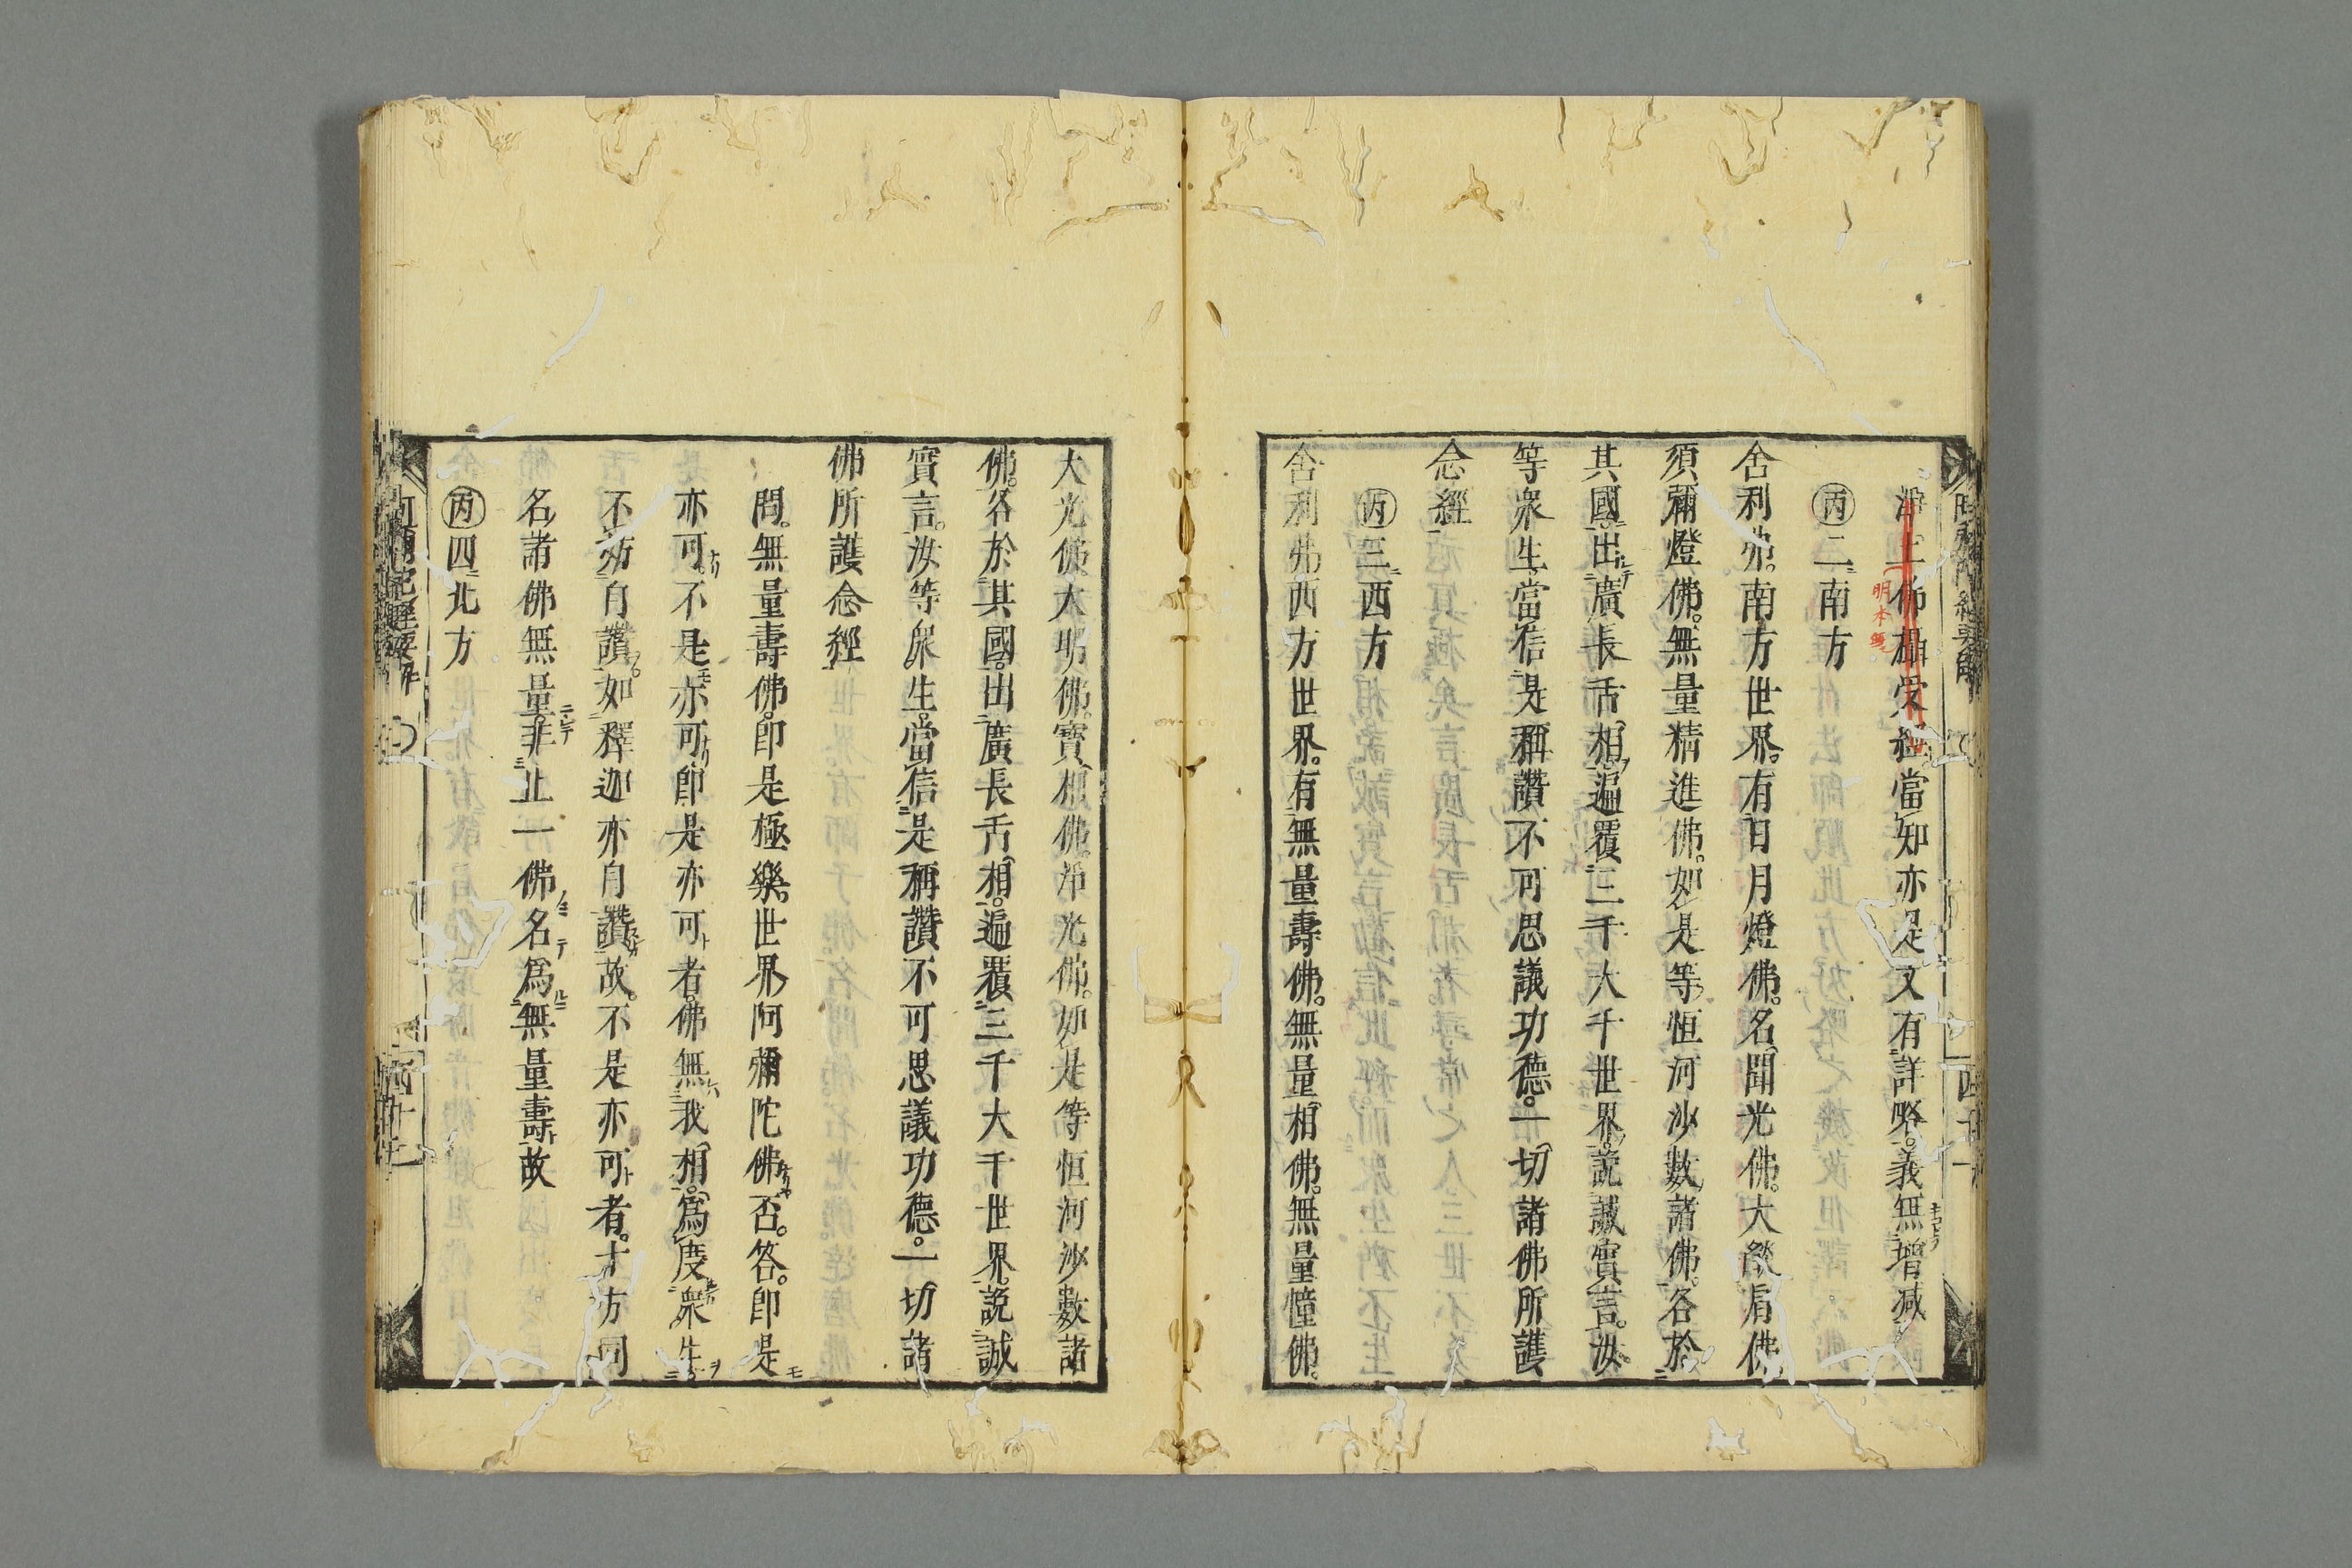 淨土佛攝受經當知亦是又有詳略義無增減
明本無
丙二南方
舍利弗。南方世界。有日月燈佛。名聞光佛。大燄肩佛。
須彌燈佛。無量精進佛。如是等恒河沙數諸佛。各於
其國。出廣長舌相。遍覆三千大千世界。説誠實言。汝
等衆生。當信是稱讚不可思議功德。一切諸佛所護
念經
丙三西方
舍利弗西方世界。有無量壽佛。無量相佛。無量幢佛。
大光佛大明佛。寶相佛淨光佛。如是等恒河沙數諸
佛。各於其國。出廣長舌相。遍覆三千大千世界。説誠
實言。汝等衆生。當信是稱讚不可思議功德。一切諸
佛所護念經
問。無量壽佛。卽是極樂世界阿彌陀佛否。答。卽是
亦可。不是亦可卽是亦可者。佛無我相。爲度衆生
不妨自讚。如釋迦亦自讚故。不是亦可者。十方同
名諸佛無量。非止一佛名爲無量壽故
丙四北方
阿彌陀經要解